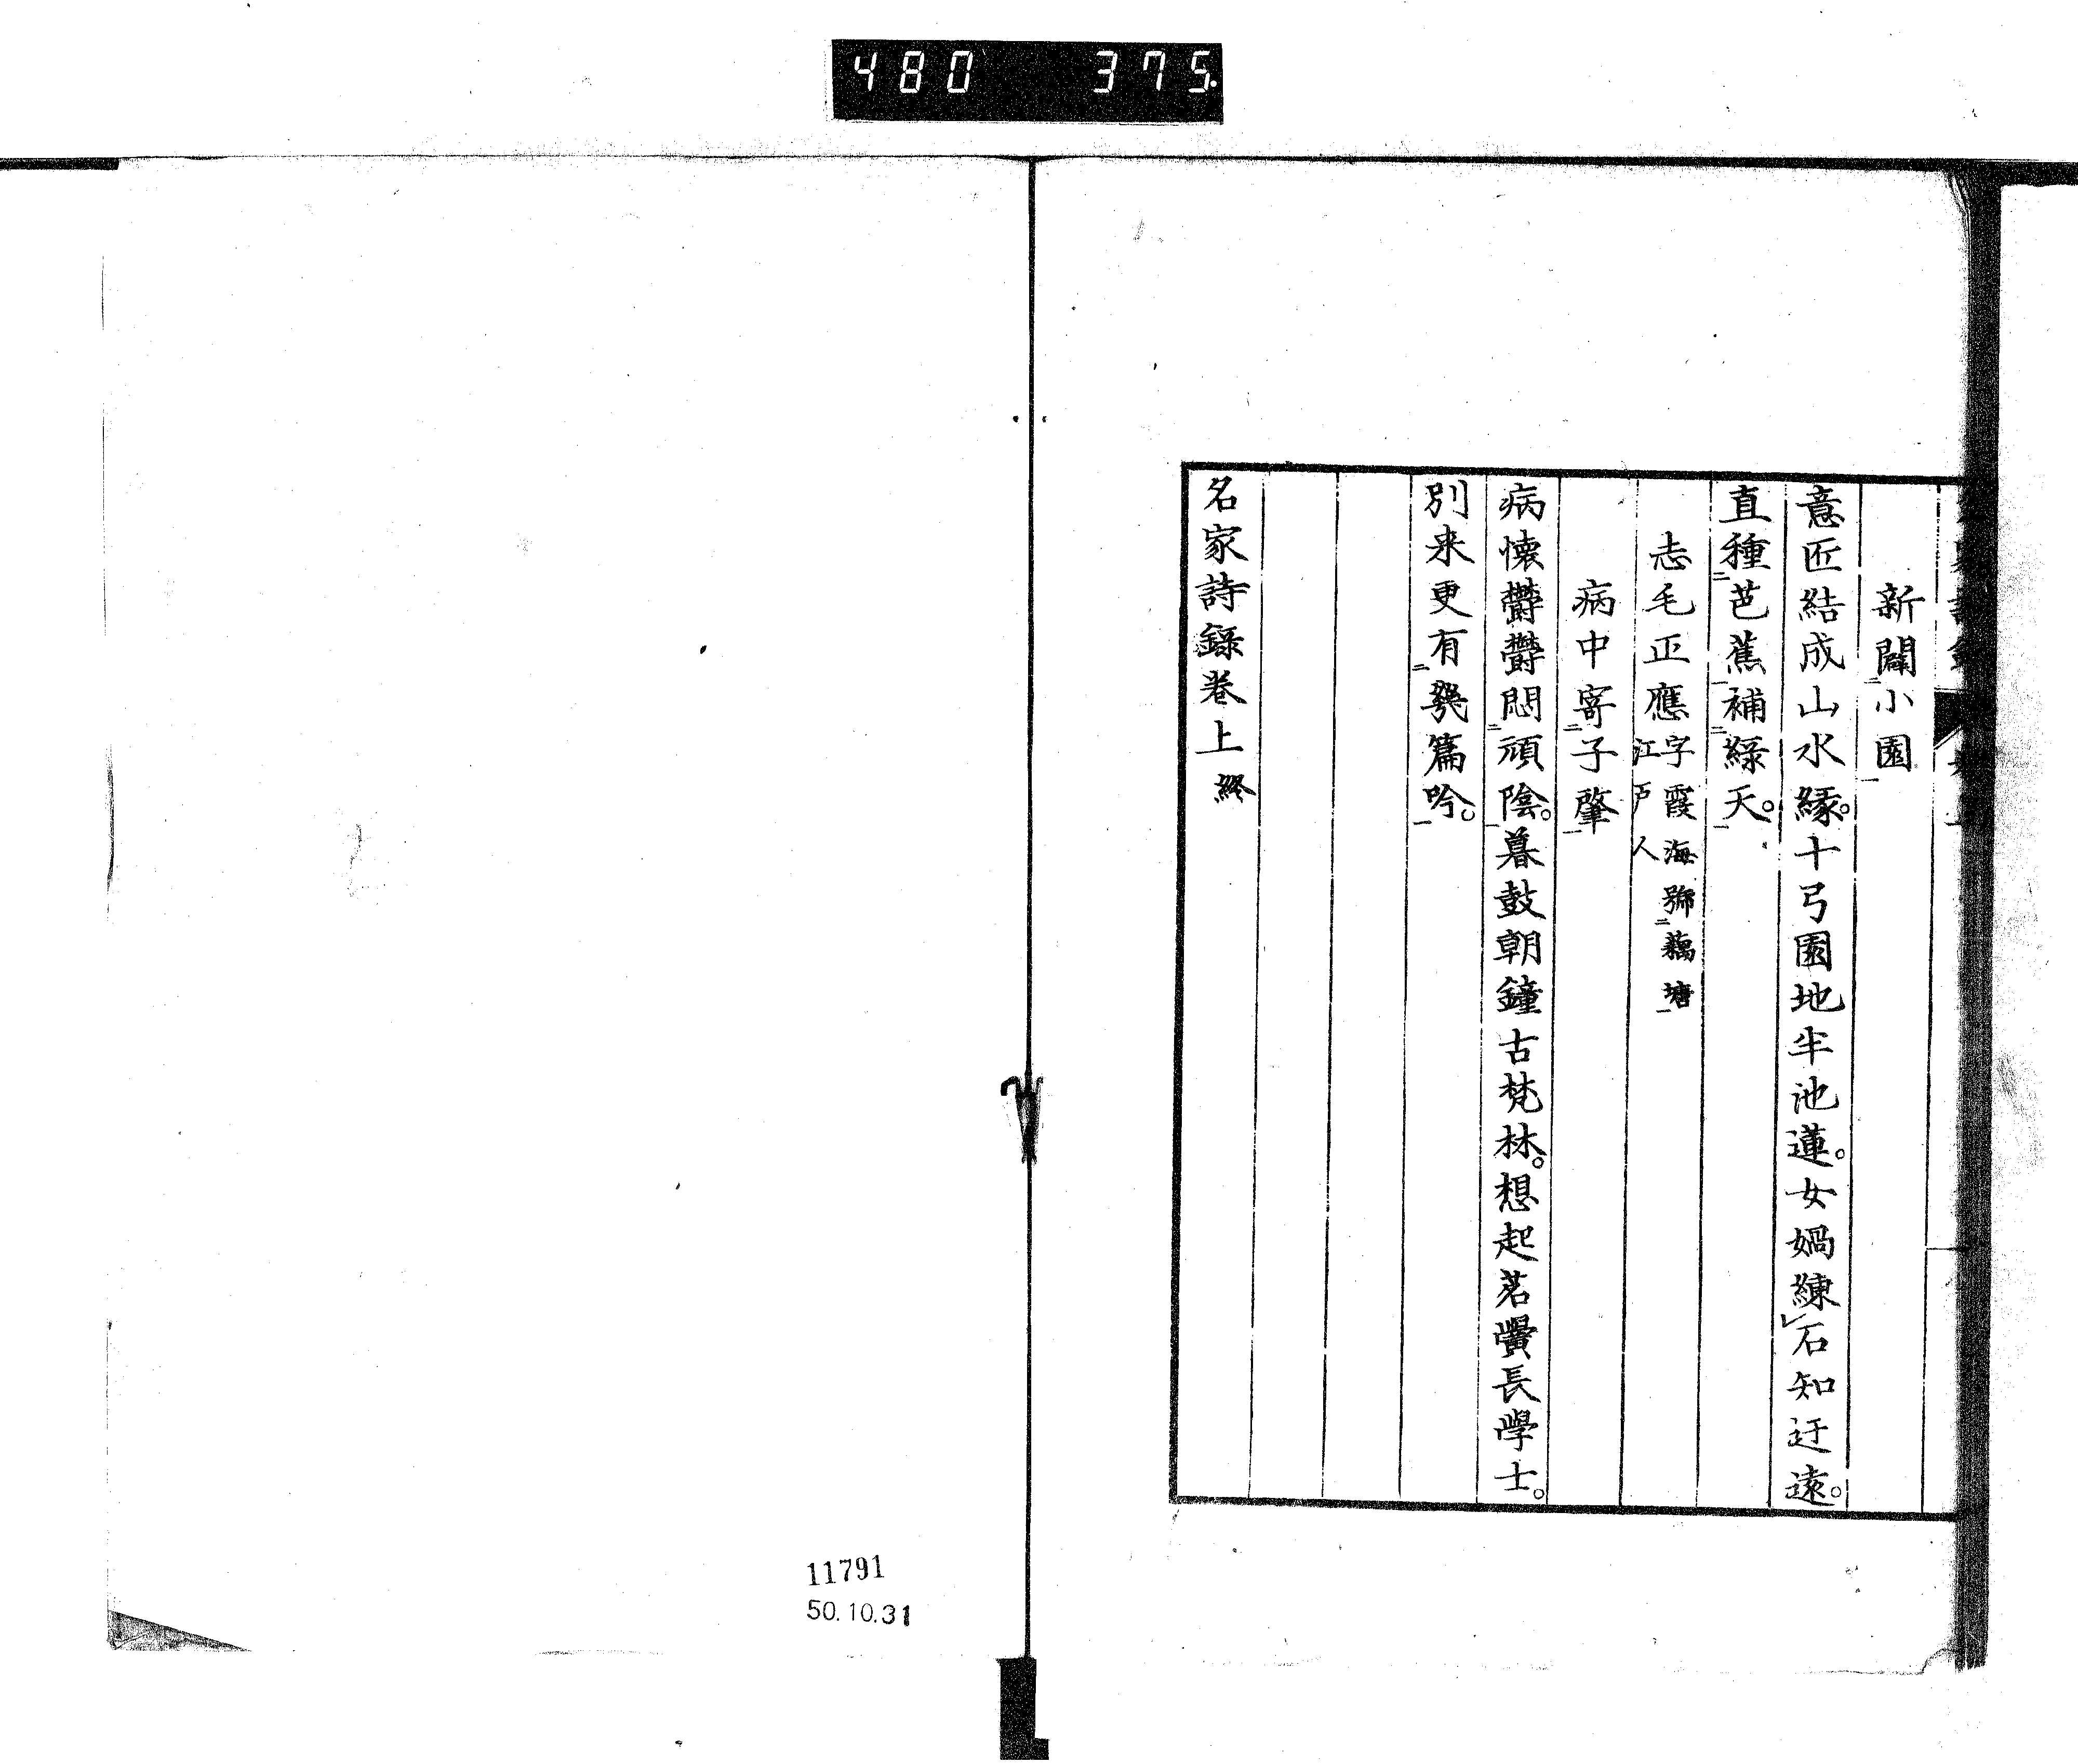 480 375
新闢二小園一
意匠結成山水縁。十弓園地半池蓮。女媧練レ石知迂遠。
直種二芭蕉一補二緑天一。
志毛正應 字霞海號二藕塘一
江戸人
病中寄二子肇一
病懐欝欝悶二頑陰一。暮鼓朝鐘古梵林。想起茗黌長學士。
別来更有二幾篇吟一。
名家詩錄卷上 終
11791
50.10.31